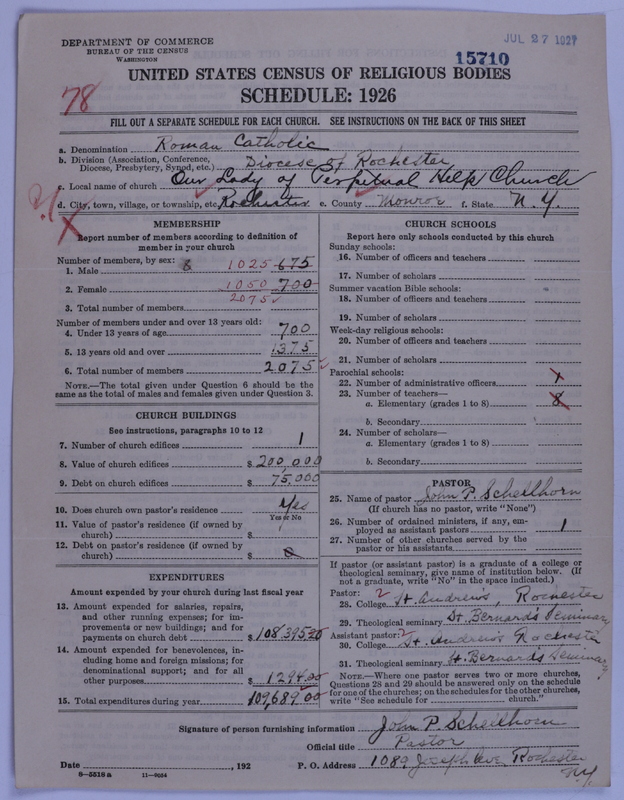 DEPARTMENT OF COMMERCE
BUREAU OF THE CENSUS
WASHINGTON
JUL 27 1927
15710
UNITED STATES CENSUS OF RELIGIOUS BODIES
SCHEDULE: 1926
78
FILL OUT A SEPARATE SCHEDULE FOR EACH CHURCH. SEE INSTRUCTIONS ON THE BACK OF THIS SHEET
a. Denomination Roman Catholic
b. Division (Association, Conference, Diocese, Presbytery, Synod, etc.) Diocese of Rochester
c. Local name of church Our Lady of Perpetual Help Church
d. City, town, village, or township, etc. Rochester e. County Monroe f. State N.Y.
MEMBERSHIP
Report number of members according to definition of member in your church
Number of members, by sex:
1. Male 1025 675
2. Female 1050 700
2075
3. Total number of members
Number of members under and over 13 years old:
4. Under 13 years of age 700
5. 13 years old and over 1375
6. Total number of members 2075
NOTE.—The total given under Question 6 should be the same as the total of males and females given under Question 3.
CHURCH BUILDINGS
See instructions, paragraphs 10 to 12
7. Number of church edifices 1
8. Value of church edifices $ 200,000
9. Debt on church edifices $ 75,000
10. Does church own pastor's residence Yes
Yes or No
11. Value of pastor's residence (if owned by church) $
12. Debt on pastor's residence (if owned by church) $ 0
EXPENDITURES
Amount expended by your church during last fiscal year
13. Amount expended for salaries, repairs, and other running expenses; for improvements or new buildings; and for payments on church debt $ 108,395.20
14. Amount expended for benevolences, including home and foreign missions; for denominational support; and for all other purposes $ 1294.00
15. Total expenditures during year 109,689.00
CHURCH SCHOOLS
Report here only schools conducted by this church
Sunday schools:
16. Number of officers and teachers
17. Number of scholars
Summer vacation Bible schools:
18. Number of officers and teachers
19. Number of scholars
Week-day religious schools:
20. Number of officers and teachers
21. Number of scholars
Parochial schools:
22. Number of administrative officers 1
23. Number of teachers—
a. Elementary (grades 1 to 8) 8
b. Secondary
24. Number of scholars—
a. Elementary (grades 1 to 8)
b. Secondary
PASTOR
25. Name of pastor John P. Schellhorn
(If church has no pastor, write "None")
26. Number of ordained ministers, if any, employed as assistant pastors 1
27. Number of other churches served by the pastor or his assistants
If pastor (or assistant pastor) is a graduate of a college or theological seminary, give name of institution below. (If not a graduate, write "No" in the space indicated.)
Pastor: 2
28. College St. Andrew's, Rochester
29. Theological seminary St. Bernard's Seminary
Assistant pastor: 2
30. College St. Andrew's Rochester
31. Theological seminary St. Bernard's Seminary
NOTE.—Where one pastor serves two or more churches, Questions 28 and 29 should be answered only on the schedule for one of the churches; on the schedules for the other churches, write "See schedule for church."
Signature of person furnishing information John P. Schellhorn
Official title Pastor
Date , 192 P. O. Address 1089 Joseph Ave Rochester N.Y.
8—5518 a 11—9034